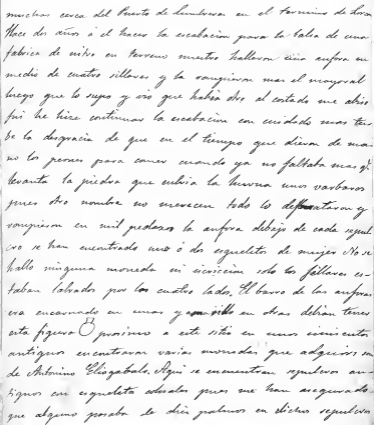 muchas cerca del Puerto de Lumbreras en el termino de Lorca
Hace dos años o al hacer la escabacion para la balsa de una
fabrica de nitro en terreno nuestro hallaron una anfora en
medio de cuatro sillares y la rompieron mas el mayoral
luego que lo supo y vio que habia otra al costado me aviso
fui he hize continuar la escabacion con cuidado mas tu
be la desgracia de que en el tiempo que dieron de ma
no los peones para comer cuando ya no faltaba mas q.
levantar la piedra que cubria la hurna unos barbaros
pues otro nombre no merecen todo lo y
rompieron en mil pedazos la anfora debajo de cada sepul
cro se han encontrado uno ó dos esqueletos de mujer No se
hallo ninguna moneda ni inscricion solo los sillares es-
taban labrados por los cuatro lados. El barro de las anforas
era encarnado en unas y en otras debian tener
esta figura proximo a este sitio en unos cimientos
antiguos encontraron varias monedas que adquiri son
de Antonino Eliogabalo. Aqui se encuentran sepulcros an-
tiguos con esqueletos pues me han asegurado
que alguno pasaba de diez palmos en dichos sepulcros